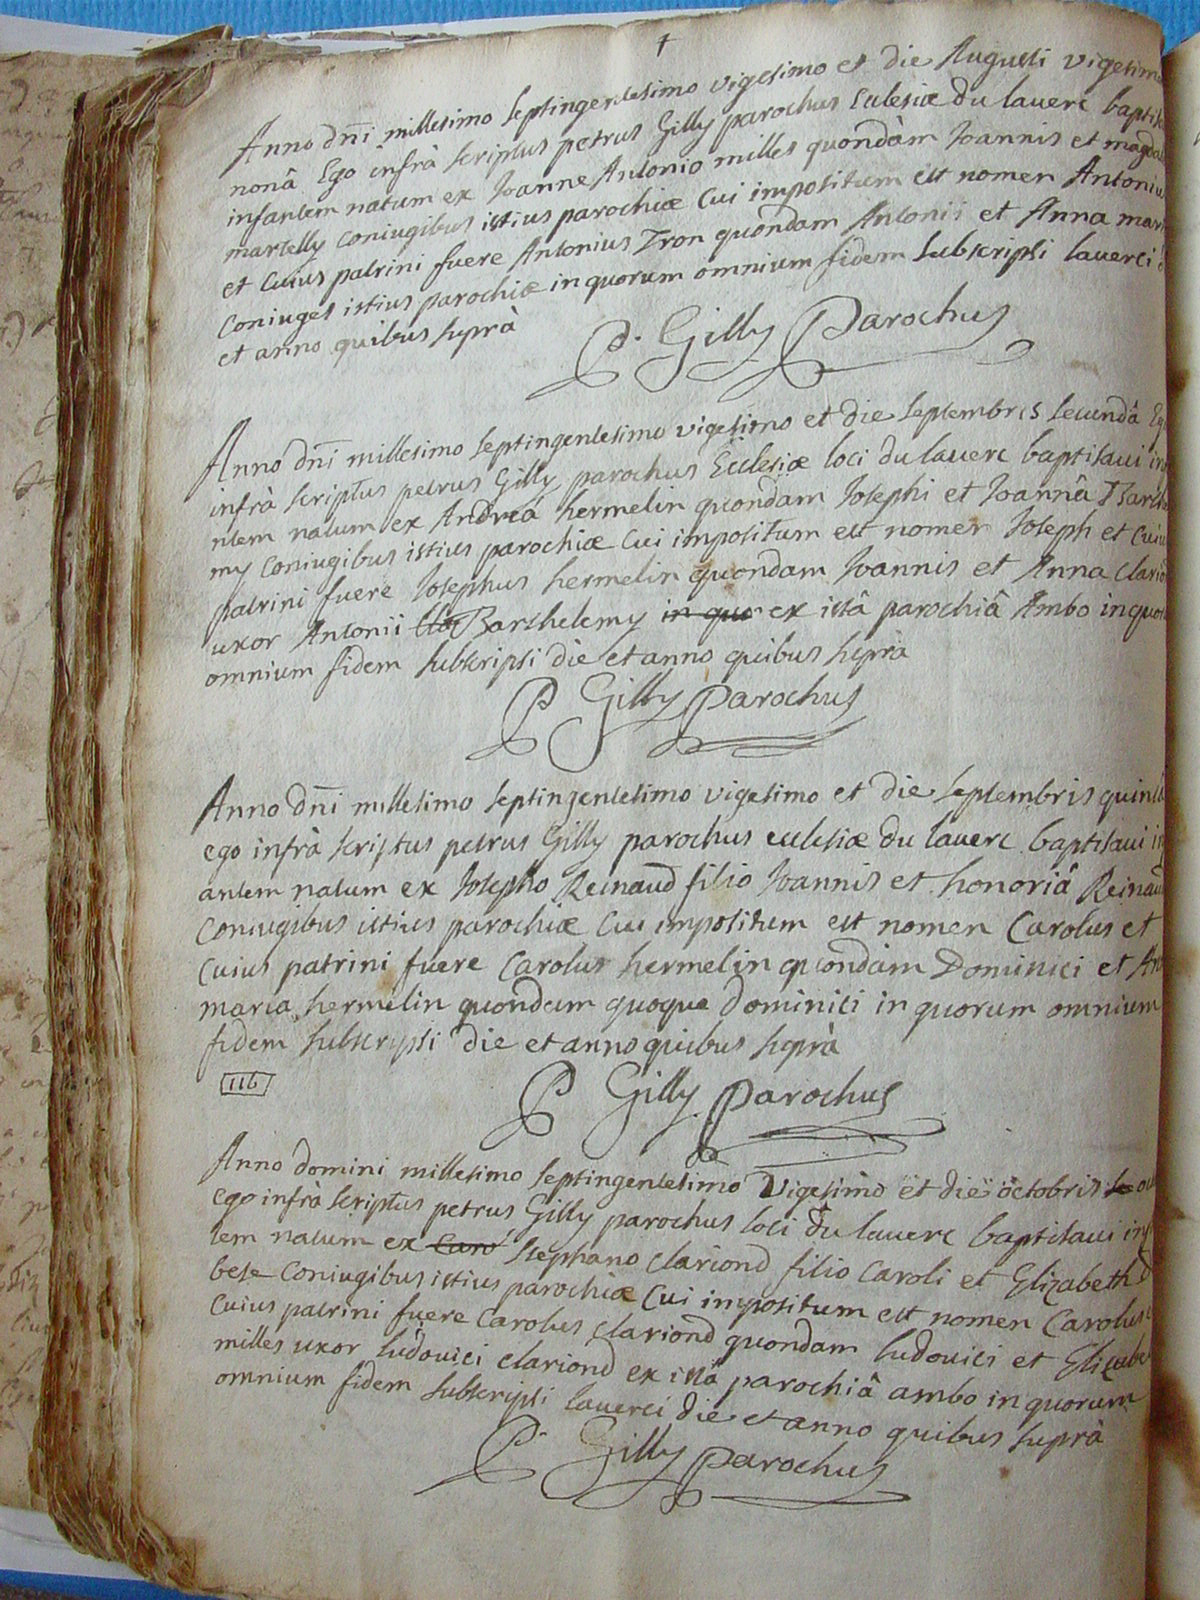 Anno dñi millesimo septingentesimo vigesimo et die Augusti vigesima
nonâ Ego infrà scriptus petrus Gilly parochus Ecclesiæ du lauerc baptisa
infantem natum ex Joanne Antonio milles quondàm Joannis et magdal
martelly coniugibus istius parochiæ Cui impositum est nomen Antonius
et Cuius patrini fuere Antonius Tron quondam Antonii et Anna mari
coniuges istius parochiæ in quorum omnium fidem subscripsi lauerci
et anno quibus suprà
P. Gilly Parochus
Anno dñi millesimo septingentesimo vigesimo et die septembris secundâ Eg
infrà scriptus petrus Gilly parochus Ecclesiæ loci du lauerc baptisaui in
ntem natum ex Andreâ hermelin quondam Josephi et Joannâ Barthe
my coniugibus istius parochiæ Cui impositum est nomen Joseph et Cuiu
patrini fuere Josephus hermelin quondam Joannis et Anna clario
uxor Antonii Barthelemy in quo ex istâ parochiâ Ambo in quor
omnium fidem subscripsi die et anno quibus suprà
P Gilly Parochus
Anno dñi millesimo septingentesimo vigesimo et die septembris quintâ
ego infrà scriptus petrus Gilly parochus ecclesiæ du lauerc baptisaui inf
antem natum ex Josepho Reinaud filio Joannis et honoriâ Reinaud
coniugibus istius parochiæ Cui impositum est nomen Carolus et
Cuius patrini fuere Carolus hermelin quondam Dominici et An
maria hermelin quondam quoque dominici in quorum omnium
fidem subscripsi die et anno quibus suprà
116
P Gilly Parochus
Anno domini millesimo septingentesimo vigesimo et die octobris
ego infrà scriptus petrus Gilly parochus loci du lauerc baptisaui inf
tem natum ex Stephano clariond filio Caroli et Elizabeth
bese coniugibus istius parochiæ Cui impositum est nomen Carolus
cuius patrini fuere Carolus clariond quondam ludouici et Elizabe
milles uxor ludouici clariond ex istâ parochiâ ambo in quorum
omnium fidem subscripsi lauerci die et anno quibus suprà
P. Gilly parochus